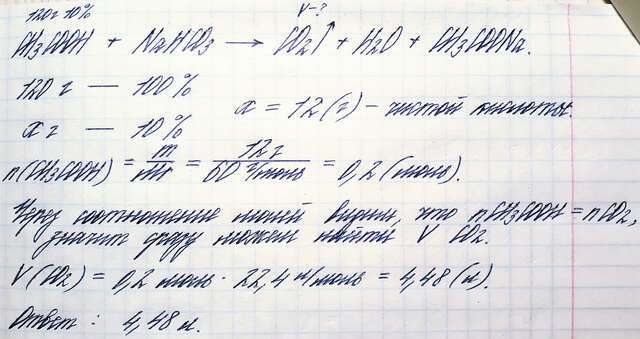 120г 10% V-?
CH3COOH + NaHCO3 → CO2↑ + H2O + CH3COONa.
120 г — 100%
x = 12(г) - чистой кислоты.
x г — 10%
n(CH3COOH) = m/Mr = 12г/60 г/моль = 0,2 (моль).
Через соотношение молей видим, что nCH3COOH = nCO2,
значит сразу можем найти V CO2.
V(CO2) = 0,2 моль · 22,4 л/моль = 4,48 (л).
Ответ: 4,48 л.